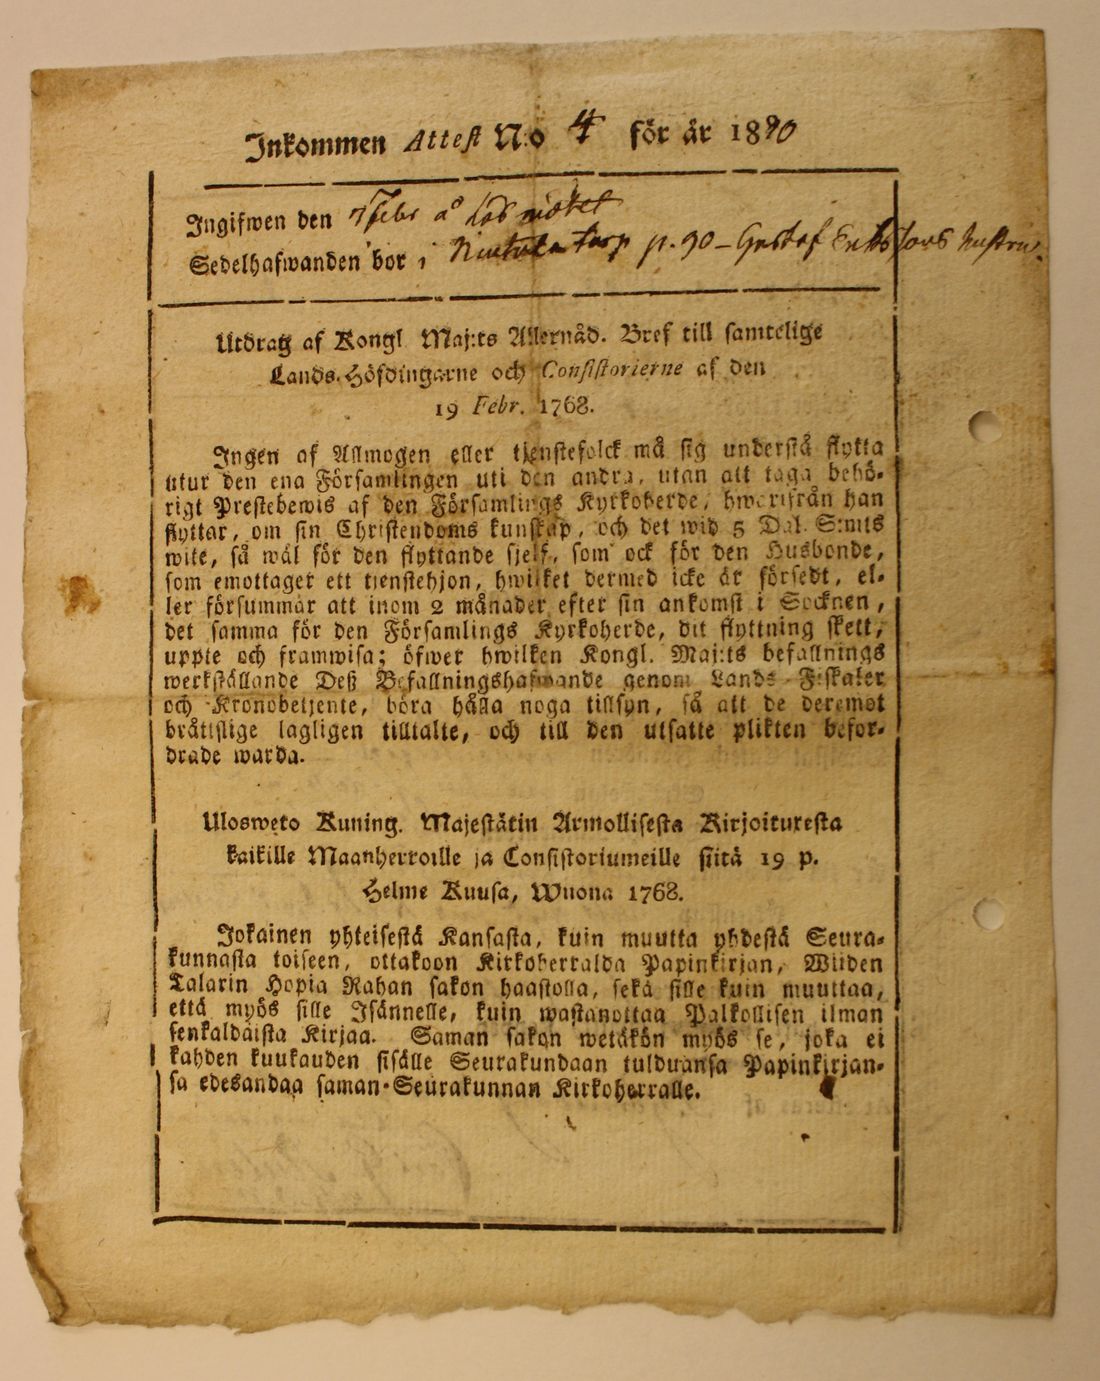 Inkommen Attest N:o 4 för år 18
Ingifwen den 7 Febr å
Sedelhafwanden bor i torp p. 90 - Gustaf hustru.
Utdrag af Kongl Maj:ts Allernåd. Bref till samtelige
Lands-Höfdingarne och Consistorierne af den
19 Febr. 1768.
Ingen af Allmogen eller tjenstefolck må sig understå flytta
utur den ena Församlingen uti den andra, utan att taga behö-
rigt Prestebewis af den Församlings Kyrkoherde, hwarifrån han
flyttar, om sin Christendoms kunskap, och det wid 5 Dal. S:mts
wite, så wäl för den flyttande sjelf, som ock för den Husbonde,
som emottager ett tienstehjon, hwilket dermed icke är försedt, el-
ler försummar att inom 2 månader efter sin ankomst i Socknen,
det samma för den Församlings Kyrkoherde, dit flyttning skett,
uppte och framwisa; öfwer hwilken Kongl. Maj:ts befallnings
werkställande Deß Befallningshafwande genom Lands-Fiskaler
och Kronobetjente, böra hålla noga tillsyn, så att de deremot
bråttslige lagligen tilltalte, och till den utsatte plikten befor-
drade warda.
Ulosweto Kuning. Majestätin Armollisesta Kirjoituresta
kaikille Maanherroille ja Consistoriumeille siitä 19 p.
Helme Kuusa, Wuona 1768.
Jokainen yhteisestä Kansasta, kuin muutta yhdestä Seura-
kunnasta toiseen, ottakoon Kirkoherralda Papinkirjan, Wiiden
Talarin Hopia Rahan sakon haastolla, sekä sille kuin muuttaa,
että myös sille Isännelle, kuin wastanottaa Palkollisen ilman
senkaldaista Kirjaa. Saman sakon wetäkön myös se, joka ei
kahden kuukauden sisälle Seurakundaan tulduansa Papinkirjan-
sa edesandaa saman Seurakunnan Kirkoherralle.